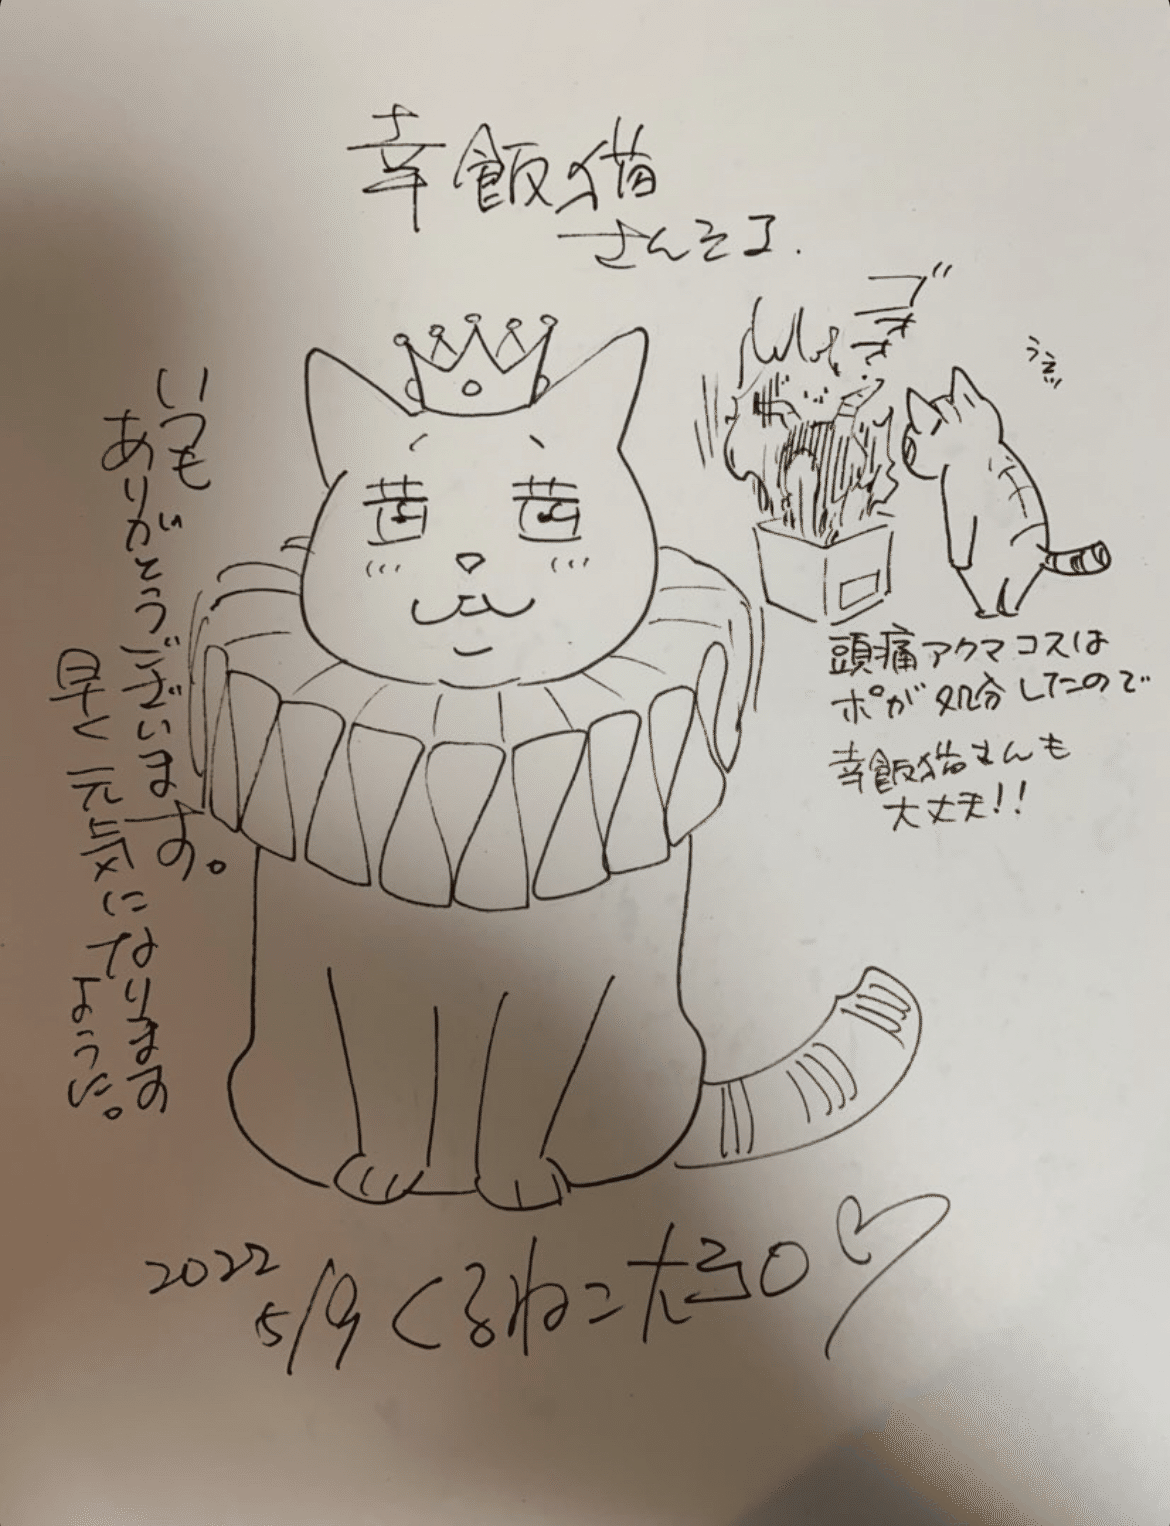 幸飯猫
さんえ
ブ
うぇッ
頭痛アクマコスは
ポが処分したので
幸飯猫さんも
大丈夫!!
いつも
ありがとうございます。
早く元気になります
ように。
2022
5/9 くるねこ大